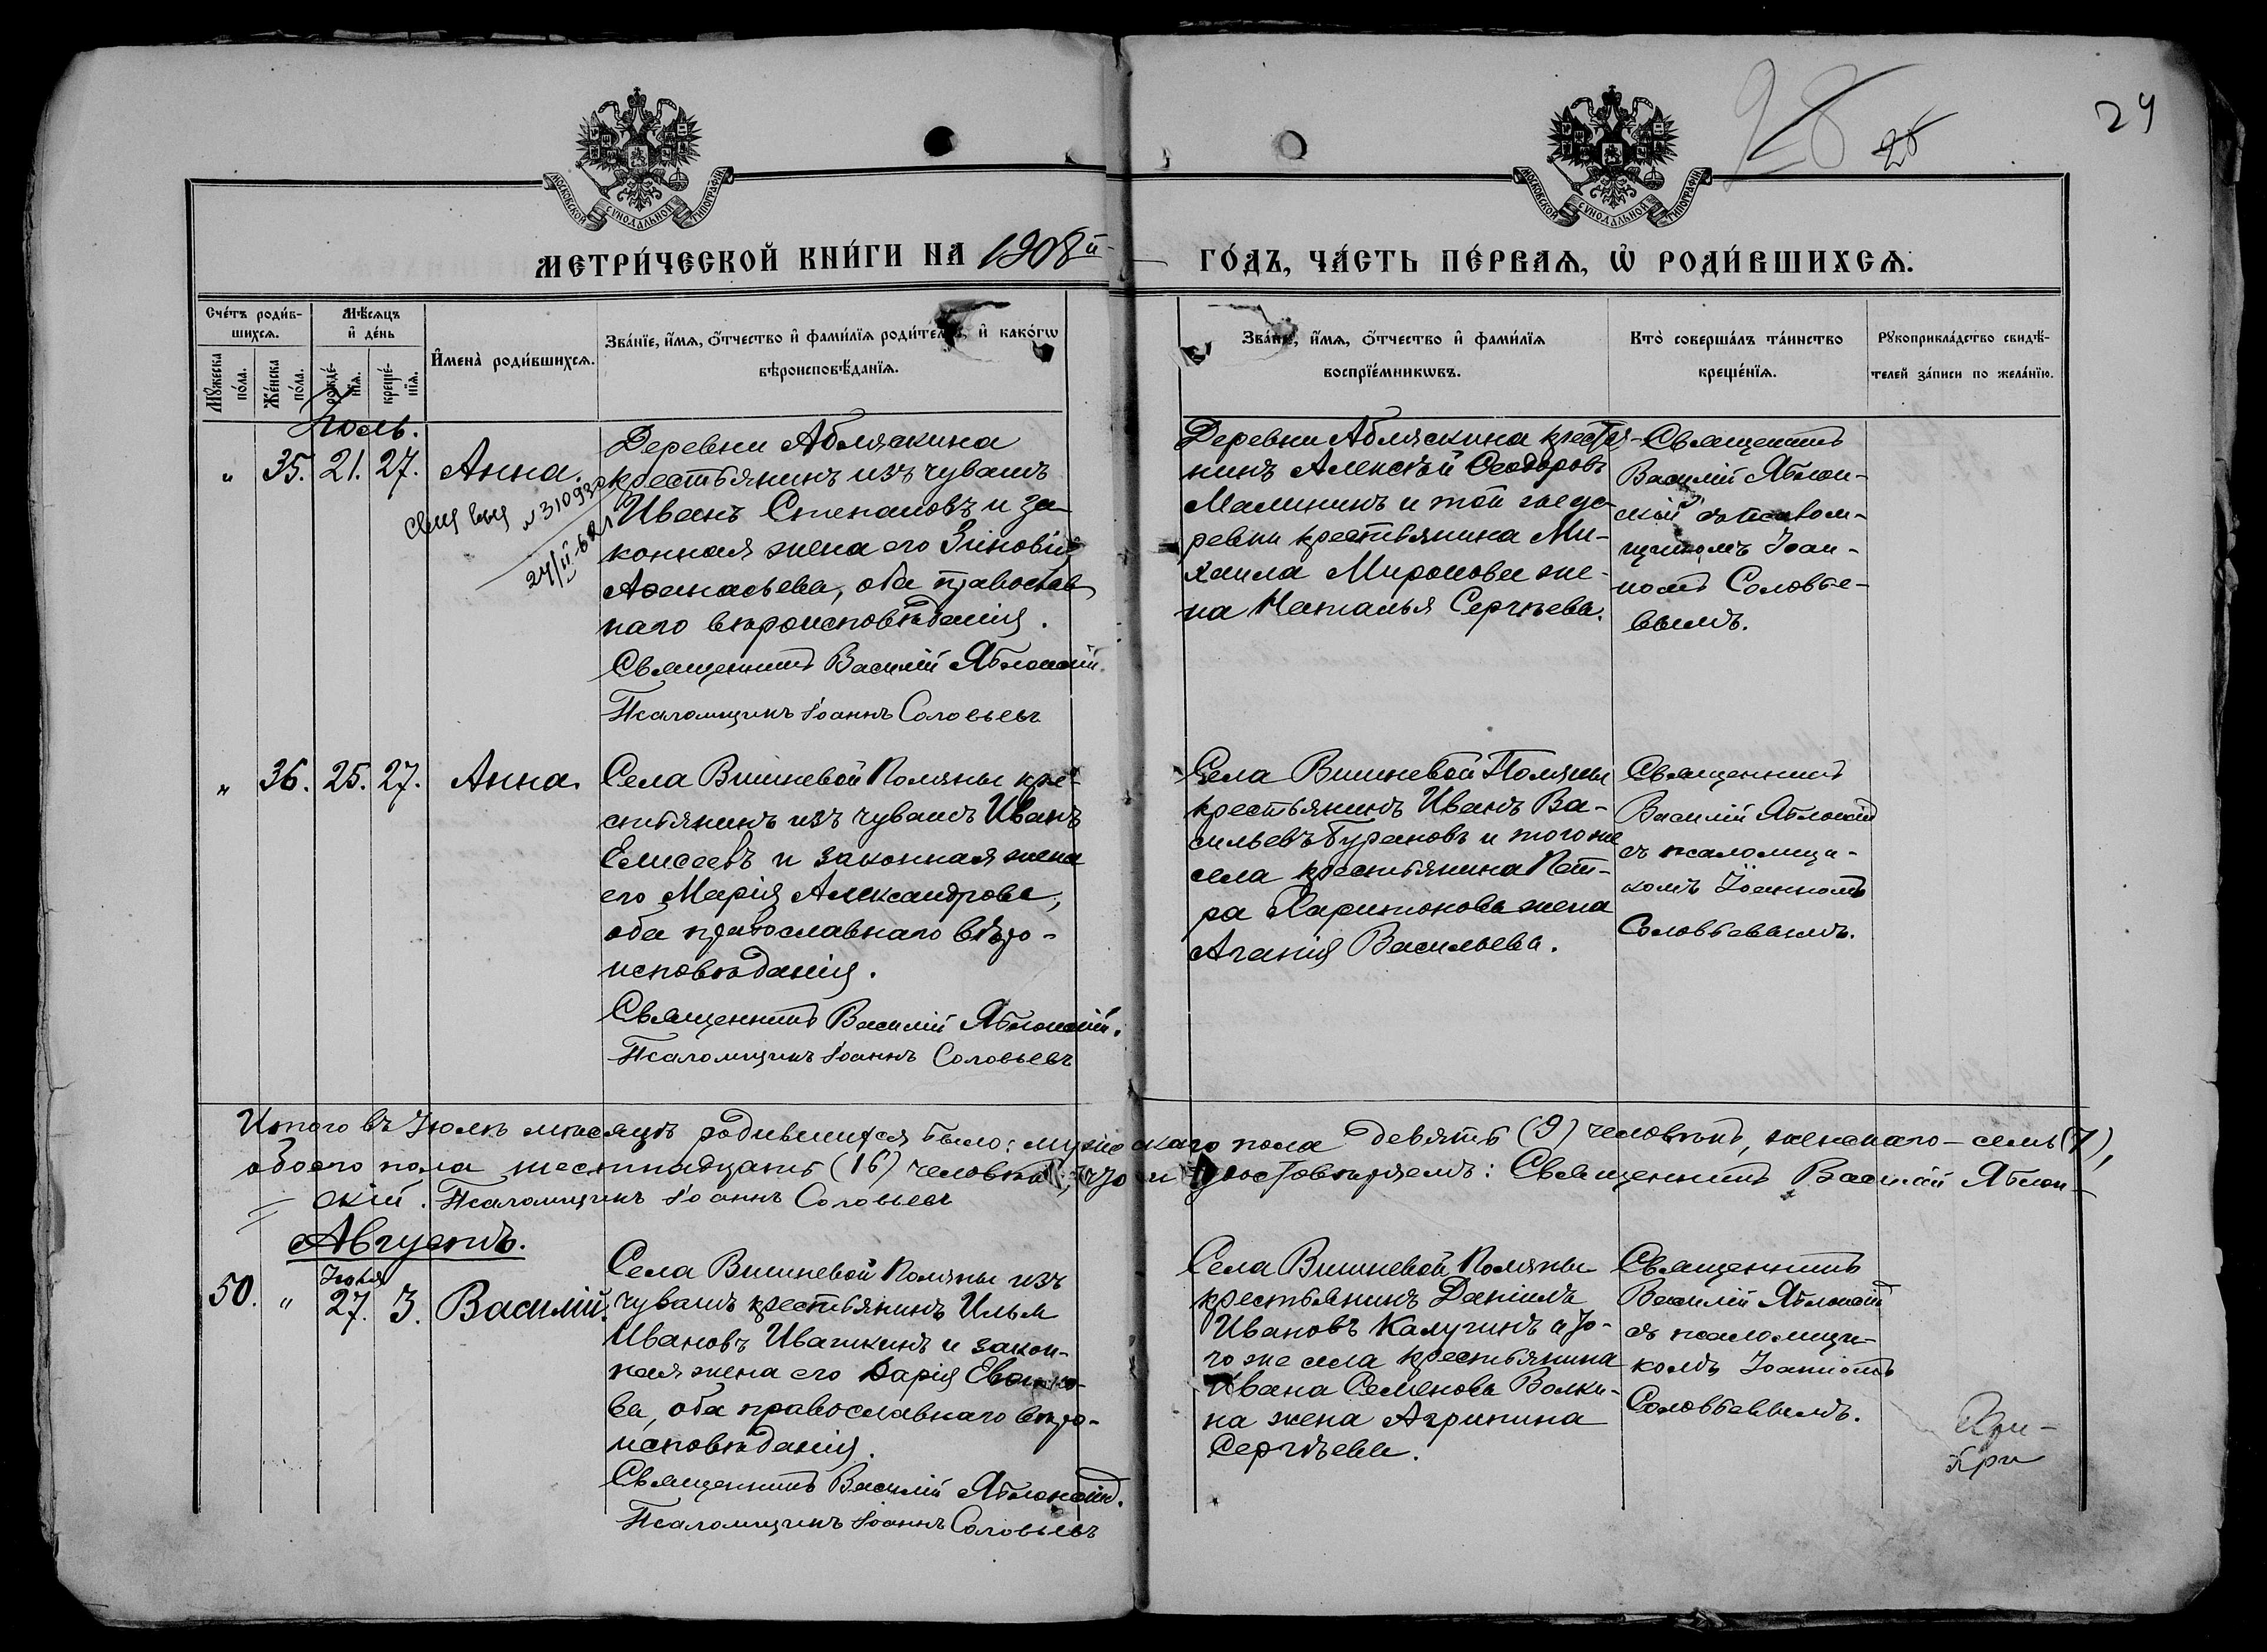 28
25
24
МОСКОВСКОЙ СѴНОДАЛЬНОЙ ТИПОГРАФІИ
МОСКОВСКОЙ СѴНОДАЛЬНОЙ ТИПОГРАФІИ
МЕТРИ́ЧЕСКОЙ КНИ́ГИ НА 1908й
ГО́ДЪ, ЧА́СТЬ ПЕ́РВАѦ, Ѡ҆ РОДИ́ВШИХСѦ.
Сче́тъ роди́в-
шихсѧ.
Мꙋ́жеска
по́ла.
Же́нска
по́ла.
Мѣ́сѧцъ
и҆ де́нь
рожде́-
нїѧ.
креще́-
нїѧ.
И҆мена̀ роди́вшихсѧ.
Зва́нїе, и҆́мѧ, ѻ҆́тчество и҆ фами́лїѧ роди́телей, и҆ како́гѡ
вѣроисповѣ́данїѧ.
Зва́нїе, и҆́мѧ, ѻ҆́тчество и҆ фами́лїѧ
воспрїе́мникѡвъ.
Кто̀ соверша́лъ та́инство
креще́нїѧ.
Рꙋкоприкла́дство свидѣ́-
телей за́писи по жела́нїю.
Іюль.
" 35. 21. 27. Анна.
N 310930
Деревни Абляскина
крестьянинъ изъ чувашъ
Иванъ Степановъ и за-
конная жена его Зиновія
Аѳанасьева, оба православ
наго вѣроисповѣданія.
Священникъ Василій Яблонскій.
Псаломщикъ Іоаннъ Соловьевъ
Деревни Абляскина крестья-
нинъ Алексѣй Ѳеодоровъ
Малининъ и той же де-
ревни крестьянина Ми-
хаила Миронова же-
на Наталья Сергѣева.
Священникъ
Василій Яблон-
скій съ псалом-
щикомъ Іоан-
номъ Соловье-
вымъ.
" 36. 25. 27. Анна.
Села Вишневой Поляны кре-
стьянинъ изъ чувашъ Иванъ
Елисеевъ и законная жена
его Марія Александрова,
оба православнаго вѣро-
исповѣданія.
Священникъ Василій Яблонскій.
Псаломщикъ Іоаннъ Соловьевъ
Села Вишневой Поляны
крестьянинъ Иванъ Ва-
сильевъ Бурановъ и того же
села крестьянина Пет-
ра Харитонова жена
Агапія Васильева.
Священникъ
Василій Яблонскій
съ псаломщи-
комъ Іоанномъ
Соловьевымъ.
Итого въ Іюлѣ мѣсяцѣ родившихся было: мужескаго пола девять (9) человѣкъ, женскаго – семь (7),
обоего пола шестнадцать (16) человѣкъ, что и удостовѣряемъ: Священникъ Василій Яблон-
скій. Псаломщикъ Іоаннъ Соловьевъ
Августъ.
Іюля
50. " 27. 3. Василій.
Села Вишневой Поляны изъ
чувашъ крестьянинъ Илья
Ивановъ Ивашкинъ и закон-
ная жена его Дарія
ва, оба православнаго вѣро-
исповѣданія.
Священникъ Василій Яблонскій.
Псаломщикъ Іоаннъ Соловьевъ
Села Вишневой Поляны
крестьянинъ Даніилъ
Ивановъ Калугинъ и то-
го же села крестьянина
Ивана Семенова Волки-
на жена Агрипина
Сергѣева.
Священникъ
Василій Яблонскій
съ псаломщи-
комъ Іоанномъ
Соловьевымъ.
При-
при